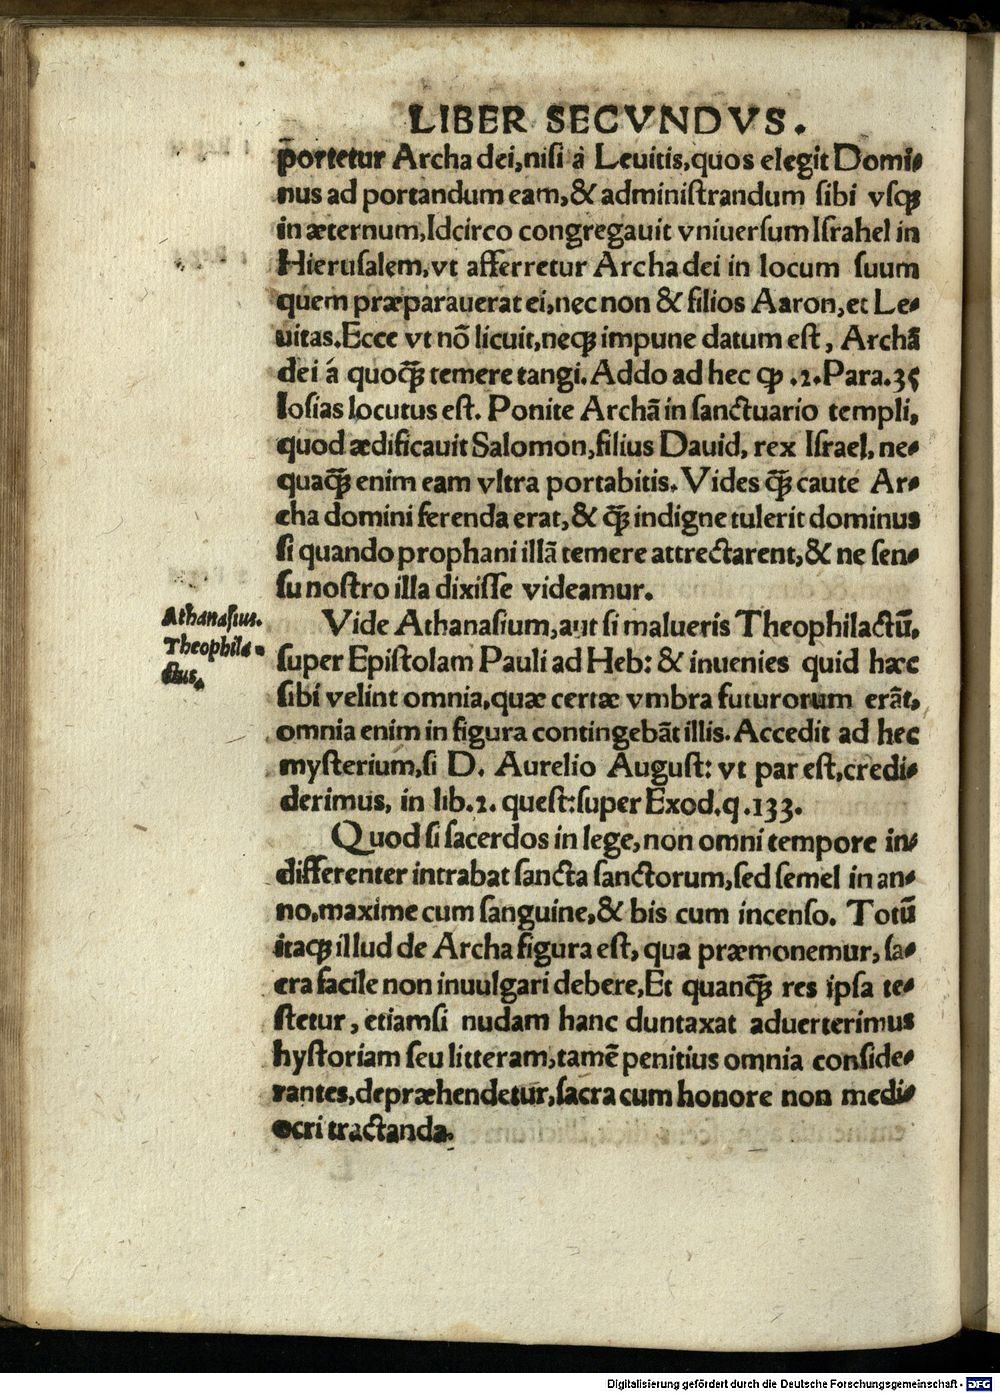 LIBER SECVNDVS.
p̄ortetur Archa dei, nisi á Leuitis, quos elegit Domi-
nus ad portandum eam, & administrandum sibi vsq;
in æternum, Idcirco congregauit vniuersum Israhel in
Hierusalem, vt afferretur Archa dei in locum suum
quem præparauerat ei, nec non & filios Aaron, et Le-
uitas. Ecce vt nõ licuit, neq; impune datum est, Archã
dei á quoq̃ temere tangi. Addo ad hec ꝙ .2. Para. 35
Iosias locutus est. Ponite Archã in sanctuario templi,
quod ædificauit Salomon, filius Dauid, rex Israel, ne-
quaq̃ enim eam vltra portabitis. Vides q̃ caute Ar-
cha domini ferenda erat, & q̃ indigne tulerit dominus
si quando prophani illã temere attrectarent, & ne sen-
su nostro illa dixisse videamur.
Athanasius.
Vide Athanasium, aut si malueris Theophilactũ,
Theophila-
ctus.
super Epistolam Pauli ad Heb: & inuenies quid hæc
sibi velint omnia, quæ certæ vmbra futurorum erãt,
omnia enim in figura contingebãt illis. Accedit ad hec
mysterium, si D. Aurelio August: vt par est, credi-
derimus, in lib. 2. quest: super Exod. q. 133.
Quod si sacerdos in lege, non omni tempore in-
differenter intrabat sancta sanctorum, sed semel in an-
no, maxime cum sanguine, & bis cum incenso. Totũ
itaq; illud de Archa figura est, qua præmonemur, sa-
cra facile non inuulgari debere, Et quanq̃ res ipsa te-
stetur, etiamsi nudam hanc duntaxat aduerterimus
hystoriam seu litteram, tamẽ penitius omnia conside-
rantes, depræhendetur, sacra cum honore non medi-
ocri tractanda.
Digitalisierung gefördert durch die Deutsche Forschungsgemeinschaft - DFG